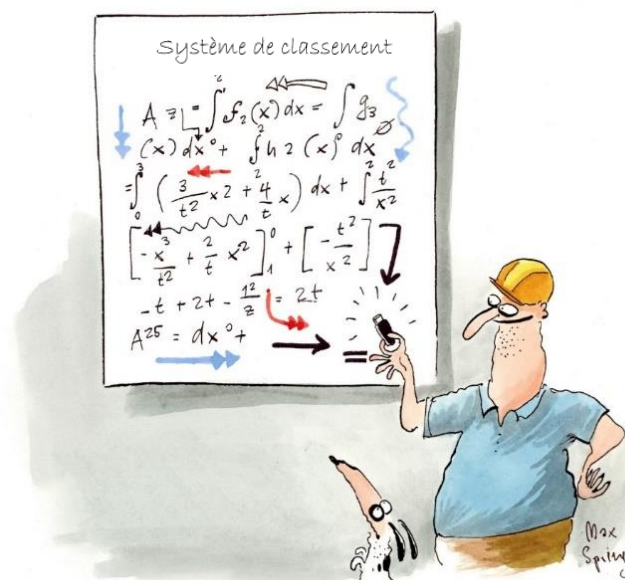 Système de classement
A = ∫ f₂(x) dx = ∫ g₃
(x) dx° + ∫ h 2 (x)° dx
= ∫₀³ ( 3/t² x 2 + 4/t x ) dx + ∫² t²/x²
[ - x³/t² + 2/t x² ]₁⁰ + [ - t²/x² ]
- t + 2t - 1²/z = 2t
A²⁵ = dx° +
=
Max